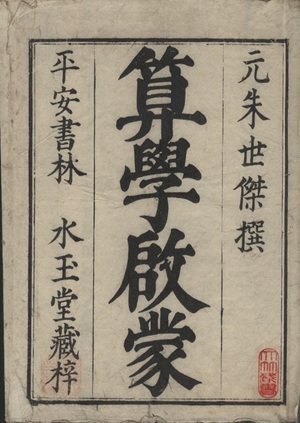 元朱世傑撰
算學啟蒙
平安書林 水玉堂藏梓